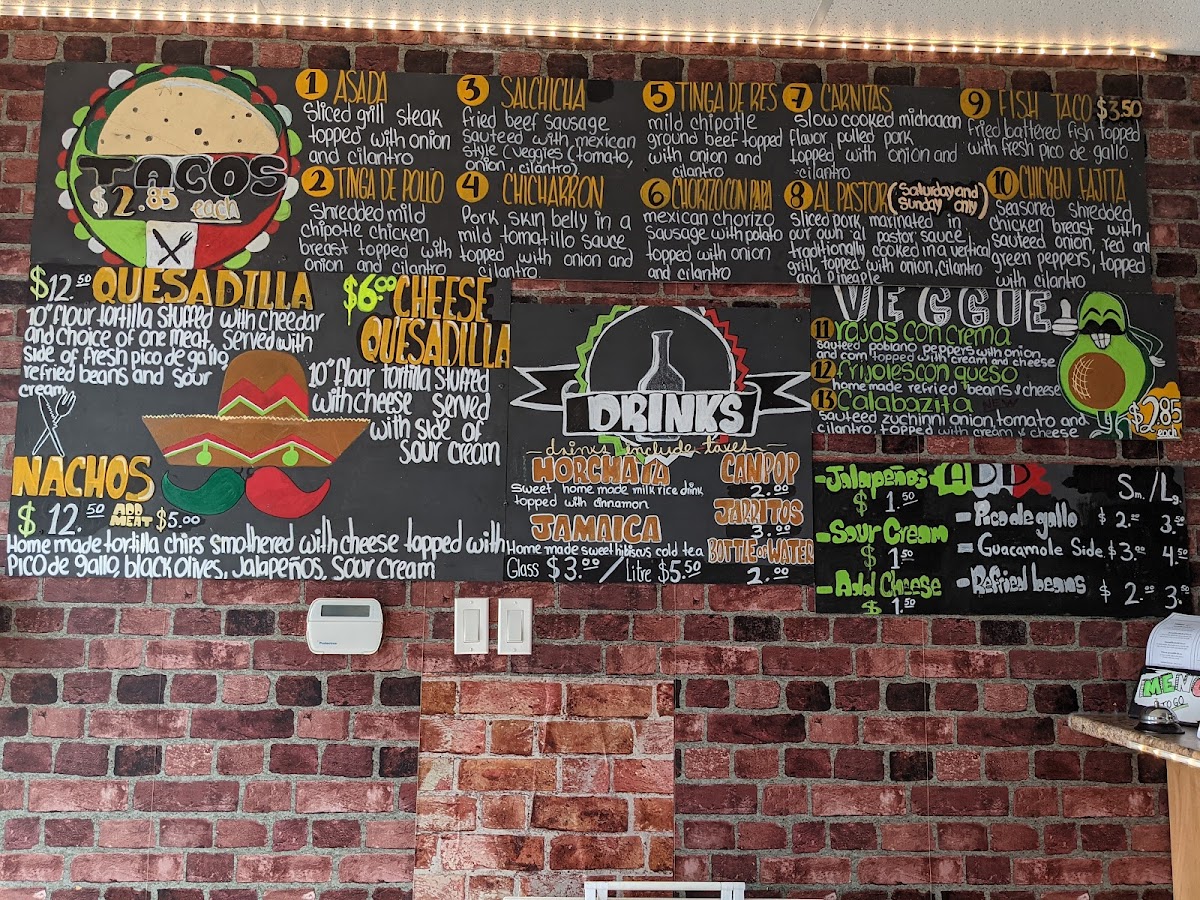 TACOS
$2.85 each
1 ASADA
Sliced grill steak
topped with onion
and cilantro
2 TINGA DE POLLO
Shredded mild
chipotle chicken
breast topped with
onion and cilantro
3 SALCHICHA
Fried beef sausage
sauteed with mexican
style (veggies (tomato,
onion, cilantro)
4 CHICHARRON
Pork skin belly in a
mild tomatillo sauce
topped with onion and
cilantro
5 TINGA DE RES
mild chipotle
ground beef topped
with onion and
cilantro
6 CHORIZO CON PAPA
mexican chorizo
sausage with potato
topped with onion
and cilantro
7 CARNITAS
Slow cooked michoacan
flavor pulled pork
topped with onion and
cilantro
8 AL PASTOR (Saturday and
Sunday only)
Sliced pork marinated
our own al pastor sauce,
traditionally cooked in a vertical
grill, topped with onion, cilantro
and Pineaple
9 FISH TACO $3.50
Fried battered fish topped
with fresh pico de gallo
10 CHICKEN FAJITA
Seasoned shredded,
chicken breast with
sauteed onion, red and
green peppers, topped
with cilantro
$12.50 QUESADILLA
10" flour tortilla stuffed with cheedar
and choice of one meat, served with
side of fresh pico de gallo
refried beans and sour
cream
$6.00 CHEESE
QUESADILLA
10" flour tortilla stuffed
with cheese served
with side of
sour cream
NACHOS
$12.50 ADD
MEAT $5.00
Home made tortilla chips smothered with cheese topped with
Pico de gallo, black olives, Jalapeños, Sour cream
DRINKS
drinks include taxes
HORCHATA
Sweet home made milk rice drink
topped with cinnamon
JAMAICA
Home made sweet hibiscus cold tea
Glass $3.00 / Litre $5.50
CAN POP
2.00
JARRITOS
3.00
BOTTLE OF WATER
2.00
VEGGIE
11 rajas con crema
sauteed poblano peppers with onion
and corn topped with cream and cheese
12 frijoles con queso
home made refried beans & cheese
13 Calabazita
sauteed zuchinni onion, tomato and
cilantro, topped with cream & cheese
$2.85
each
ADD
-Jalapeños
$1.50
-Sour Cream
$1.50
-Add Cheese
$1.50
Sm. / Lg.
- Pico de gallo $2.00 3.50
- Guacamole Side $3.00 4.50
- Refried beans $2.00 3.50
MENU
TO GO